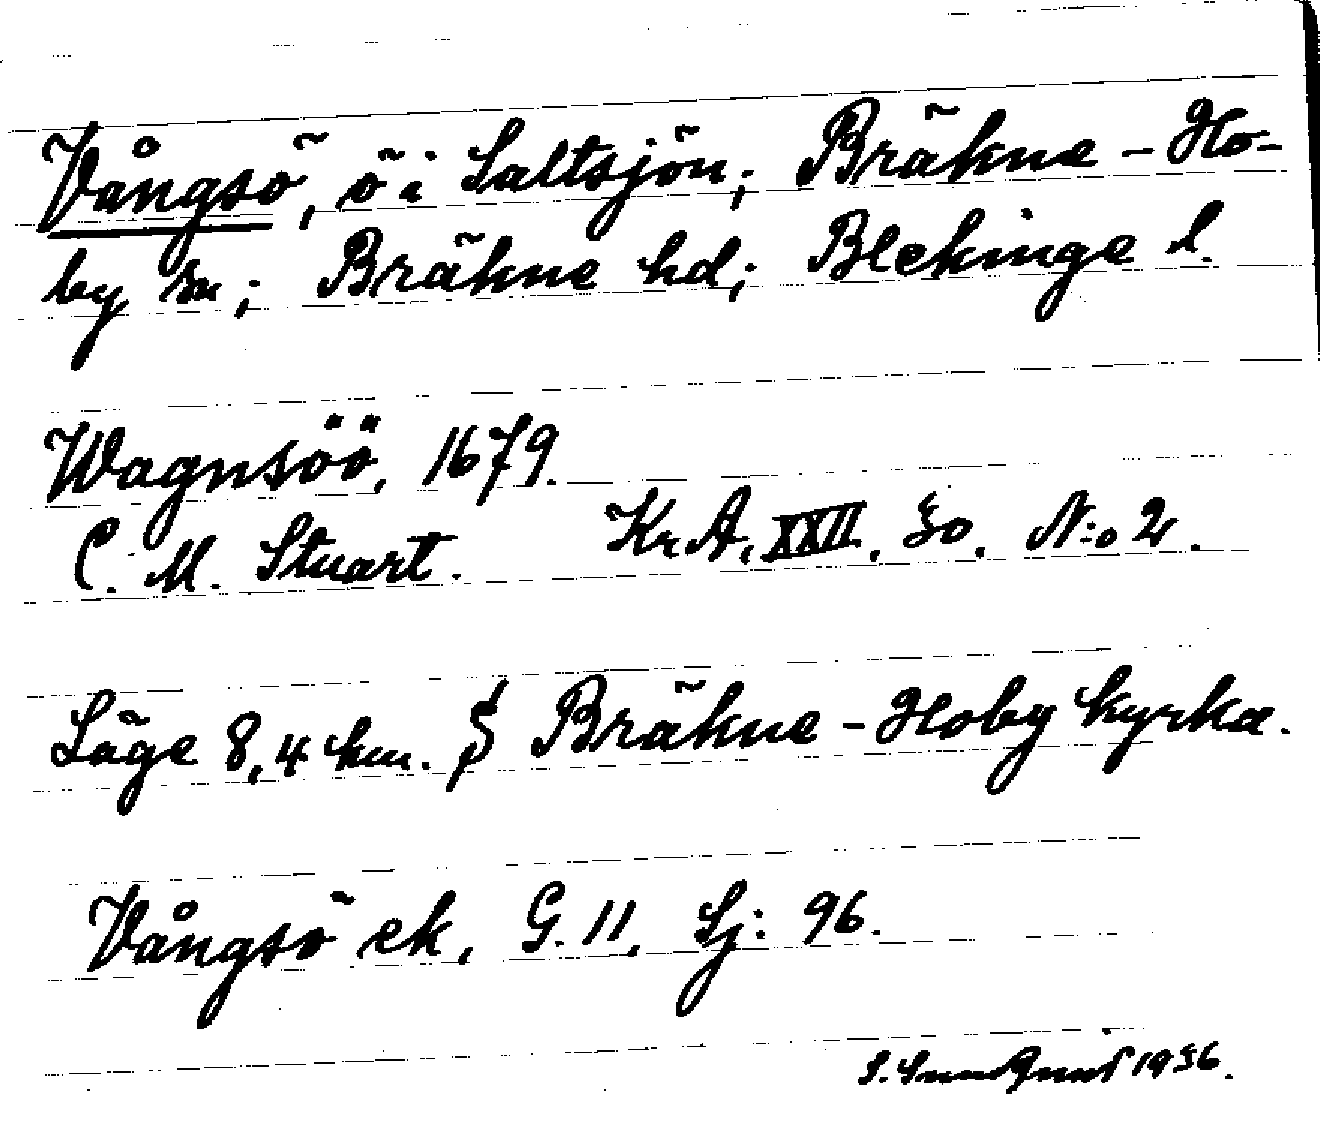 Vångsö, ö i Saltsjön; Bräkne-Ho-
by sn; Bräkne hd; Blekinge l.
Wagnsöö, 1679.
C. M. Stuart. Kr.A. XXII. 30. N:o 2.
Läge 8,4 km. S Bräkne-Hoby kyrka.
Vångsö ek, G. 11. Sj: 96.
S. 1936.